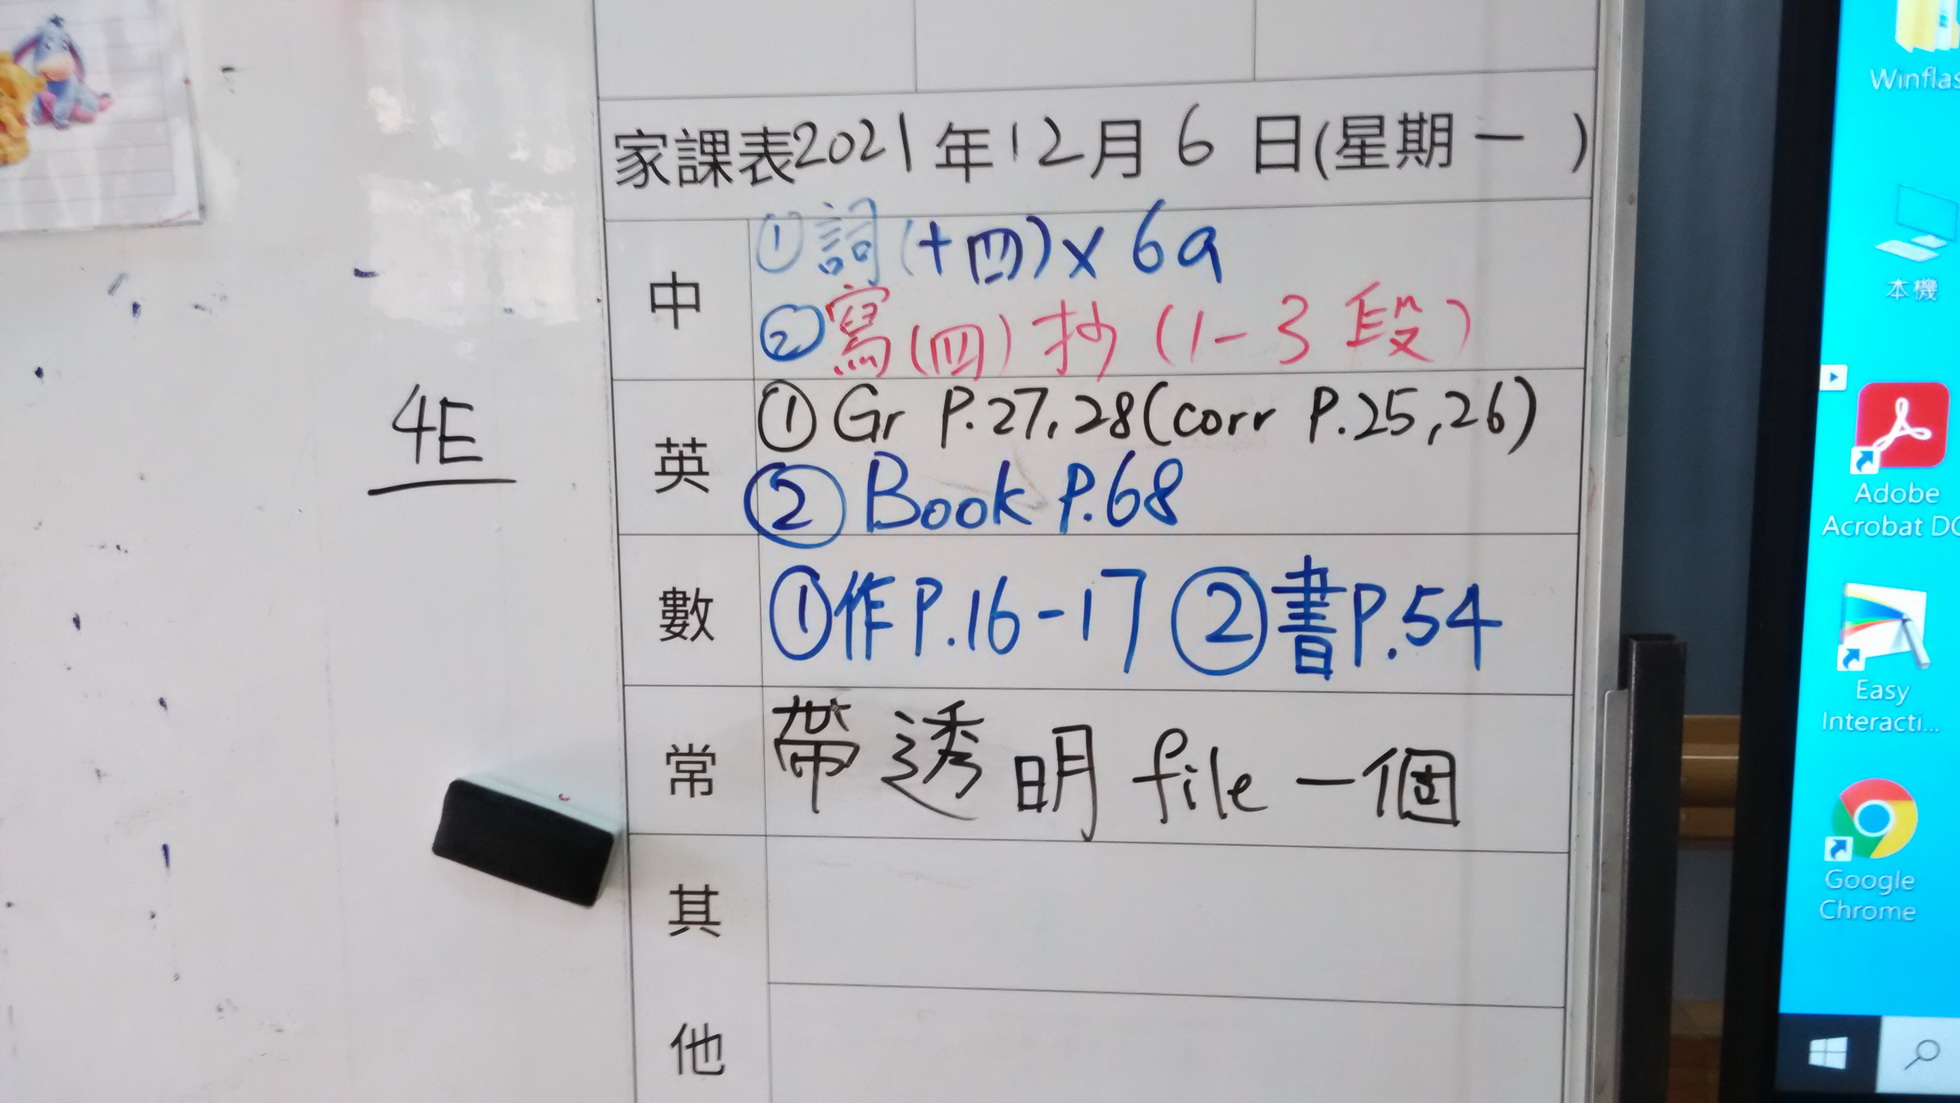 家課表2021年12月6日(星期一 )
中
①詞(十四)x 6a
②寫(四)抄(1-3段)
英
①Gr P.27,28(corr P.25,26)
②Book P.68
數
①作P.16-17 ②書P.54
常
帶透明file一個
其
他
4E
Winflas
本機
Adobe
Acrobat DC
Easy
Interacti...
Google
Chrome